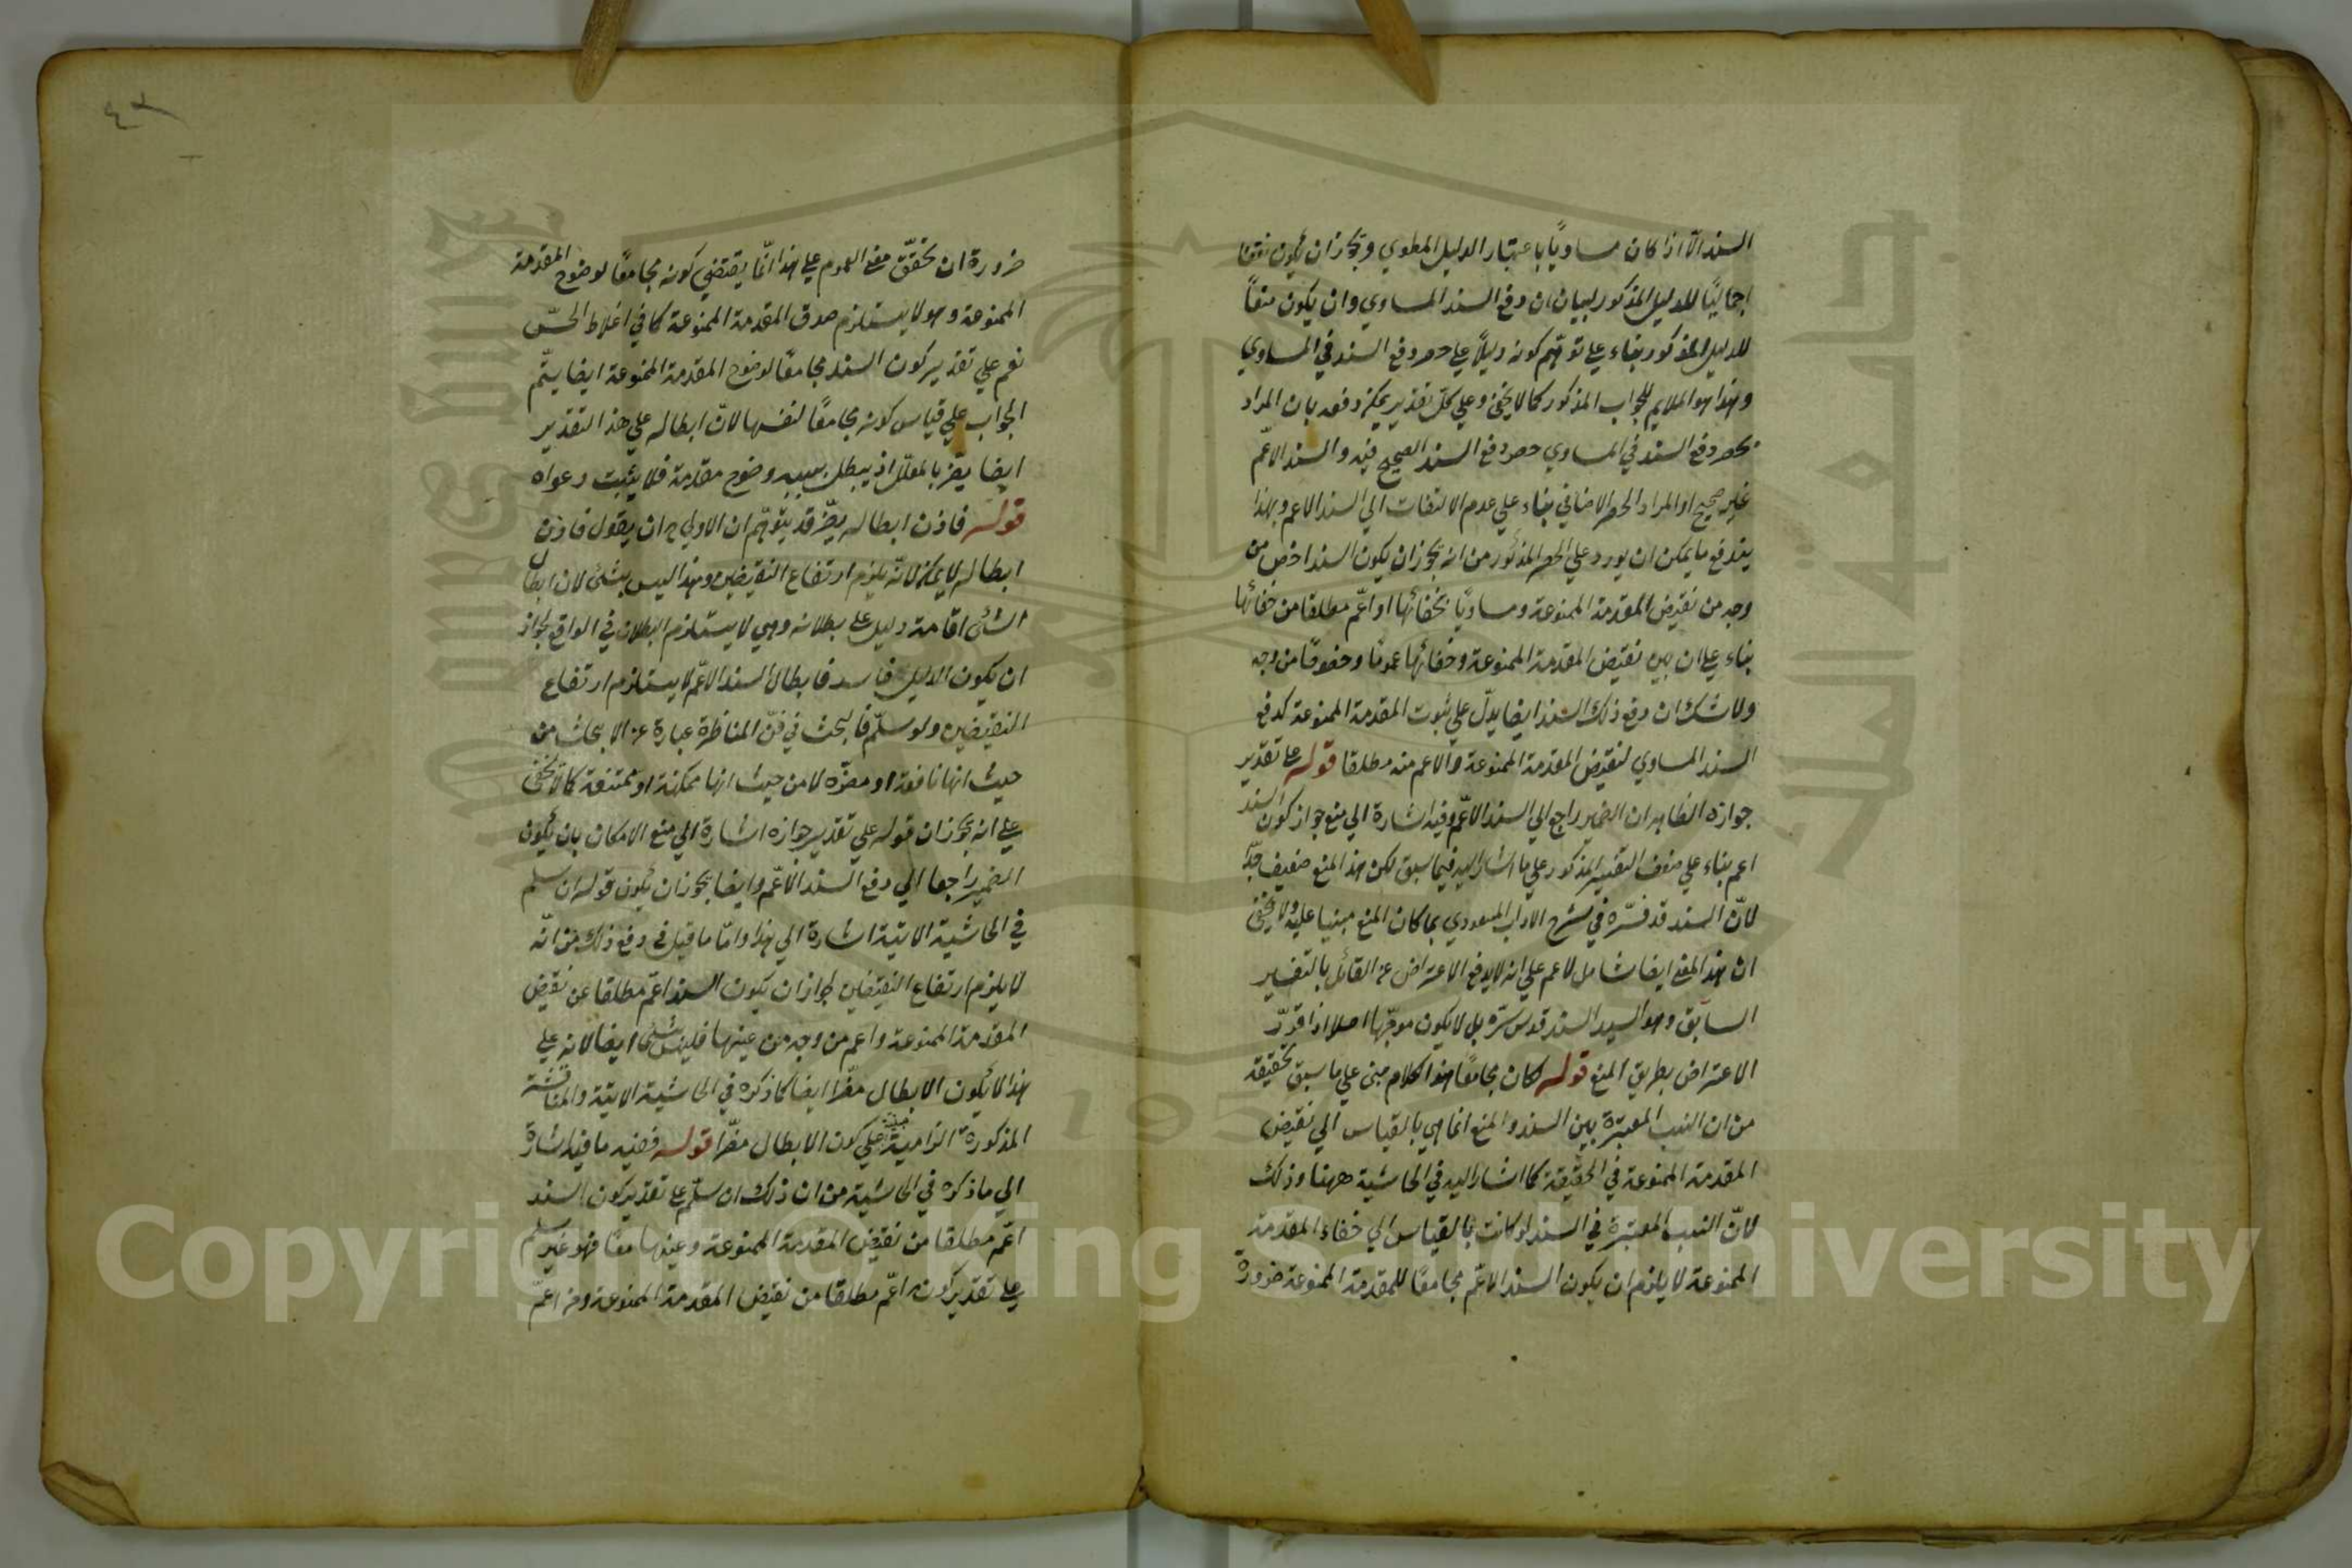 السند الا اذا كان مساويًا باعتبار الدليل المطوي ويجوز ان يكون نقضا
اجماليًا للدليل المذكور لبيان ان دفع السند المساوي وان يكون منعًا
للدليل المذكور بناء علي توهّم كونه دليلًا علي حصر دفع السند في المساوي
وهذا هو الملايم للجواب المذكور كما لا يخفي وعلي كلّ تقدير يمكن دفعه بان المراد
بحصر دفع السند في المساوي حصر دفع السند الصحيح فيه والسند الاعمّ
غير صحيح او المراد الحصر الاضافي بناء علي عدم الالتفات الي السند الاعم وبهذا
يندفع ما يمكن ان يورد علي الحصر المذكور من انه يجوز ان يكون السند اخصّ من
وجه من نقيض المقدمة الممنوعة ومساويًا لخفائها او اعمّ مطلقا من خفائها
بناء علي ان بين نقيض المقدمة الممنوعة وخفائها عمومًا وخصوصًا من وجه
ولا شك ان دفع ذلك السند ايضا يدلّ علي ثبوت المقدمة الممنوعة كدفع
السند المساوي لنقيض المقدمة الممنوعة والاعم منه مطلقا قوله علي تقدير
جوازه الظاهر ان الضمير راجع الي السند الاعمّ وفيه اشارة الي منع جواز كون السند
اعم بناء علي ضعف التفسير المذكور علي ما اشار اليه فيما سبق لكن هذا المنع ضعيف جدًّا
لانّ السند قد فسّره في شرح الاداب المسعودي بما كان المنع مبنيا عليه ولا يخفي
ان هذا المعني ايضا شامل للاعم علي انه لا يدفع الاعتراض عن القائل بالتفسير
السابق وهو السيد السند قدس سرّه بل لا يكون موجّها اصلا اذا قرّر
الاعتراض بطريق المنع قوله لكان مجامعًا هذا الكلام مبني علي ما سبق تحقيقه
من ان النسب المعتبرة بين السند والمنع انما هي بالقياس الي نقيض
المقدمة الممنوعة في الحقيقة كما اشار اليه في الحاشية ههنا وذلك
لانّ النسب المعتبرة في السند لو كانت بالقياس الي خفاء المقدمة
الممنوعة لا يلزم ان يكون السند الاعمّ مجامعًا للمقدمة الممنوعة ضرورة
ضرورة ان تحقّق معني العموم علي هذا انّما يقتضي كونه مجامعًا لوضوح المقدمة
الممنوعة وهو لا يستلزم صدق المقدمة الممنوعة كما في اغلاط الحسّ
نعم علي تقدير كون السند مجامعًا لوضوح المقدمة الممنوعة ايضا يتمّ
الجواب علي قياس كونه مجامعًا لنفسها لانّ ابطاله علي هذا التقدير
ايضا يضرّ بالمعلّل اذ يبطل بسببه وضوح مقدمة فلا يثبت دعواه
قوله فاذن ابطاله يضرّ قد يتوهّم ان الاولي ح ان يقول فاذن
ابطاله لا يمكن لانّه يلزم ارتفاع النقيضين وهذا ليس بشئ لان ابطال
الشئ اقامة دليل علي بطلانه وهي لا يستلزم البطلان في الواقع لجواز
ان يكون الدليل فاسد فابطال السند الاعمّ لا يستلزم ارتفاع
النقيضين ولو سلّم فالبحث في فنّ المناظرة عبارة عن الابحاث من
حيث انها نافعة او مضرّة لا من حيث انها ممكنة او ممتنعة كما لا يخفي
علي انه يجوز ان قوله علي تقدير جوازه اشارة الي منع الامكان بان يكون
الضمير راجعا الي دفع السند الاعمّ وايضا يجوز ان يكون قوله ان سلّم
في الحاشية الاتية اشارة الي هذا وامّا ما قيل في دفع ذلك من انّه
لا يلزم ارتفاع النقيضين لجواز ان يكون السند اعمّ مطلقا من نقيض
المقدمة الممنوعة واعم من وجه من عينها فليس بشئ ايضا لانه علي
هذا لا يكون الابطال مضرّا ايضا كما ذكره في الحاشية الاتية والمناقشة
المذكورة الزامية مبنيّة علي كون الابطال مضرّا قوله فضيه ما فيه اشارة
الي ما ذكره في الحاشية من ان ذلك ان سلّم علي تقدير كون السند
اعمّ مطلقا من نقيض المقدمة الممنوعة وعينها معًا فهو غير مسلم
علي تقدير كونه اعمّ مطلقا من نقيض المقدمة الممنوعة ومن اعمّ
Copyright © King Saud University
جامعة الملك سعود
1957